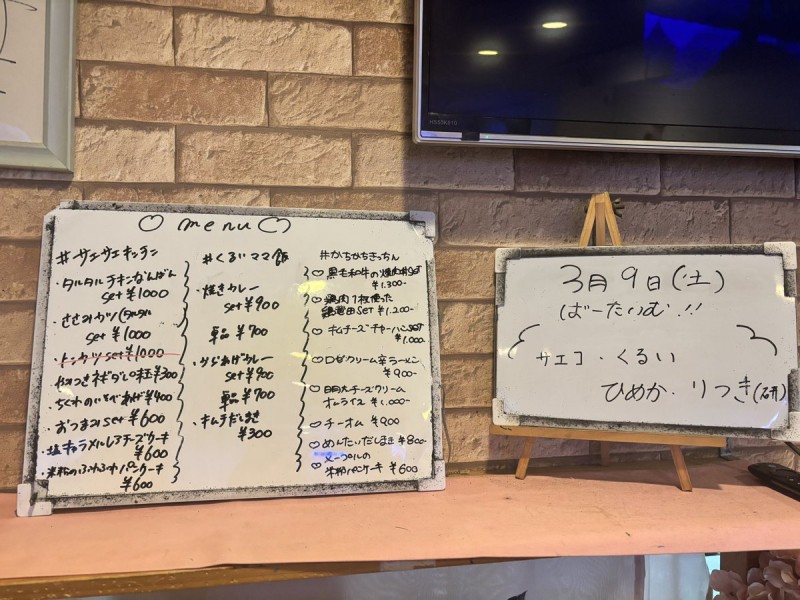 ♡ menu ♡
#サエサエキッチン
・タルタルチキンなんばん
set ¥1000
・ささみカツ(タルタル
set ¥1000
・トンカツ set ¥1000
・ちくわのいそべあげ ¥400
・おつまみ set ¥600
・塩キャラメルレアチーズケーキ
¥600
・米粉のふわふわパンケーキ
¥600
#くるいママ飯
・焼きカレー
set ¥900
単品 ¥700
・からあげカレー
set ¥900
単品 ¥700
・キムチだしまき
¥300
#かちかちきっちん
♡黒毛和牛の焼肉丼SET
¥1.300-
♡鶏肉1枚使った
SET ¥1.200-
♡キムチーズチャーハンSET
¥1.000
♡クリーム辛ラーメン
¥900-
♡明太チーズクリーム
オムライス ¥1.000-
♡チーオム ¥900
♡めんたいだしまき ¥800-
♡メープルの
米粉パンケーキ ¥600
3月9日(土)
ばーたいむ!!
サエコ・くるい
ひめか・りつき(研)